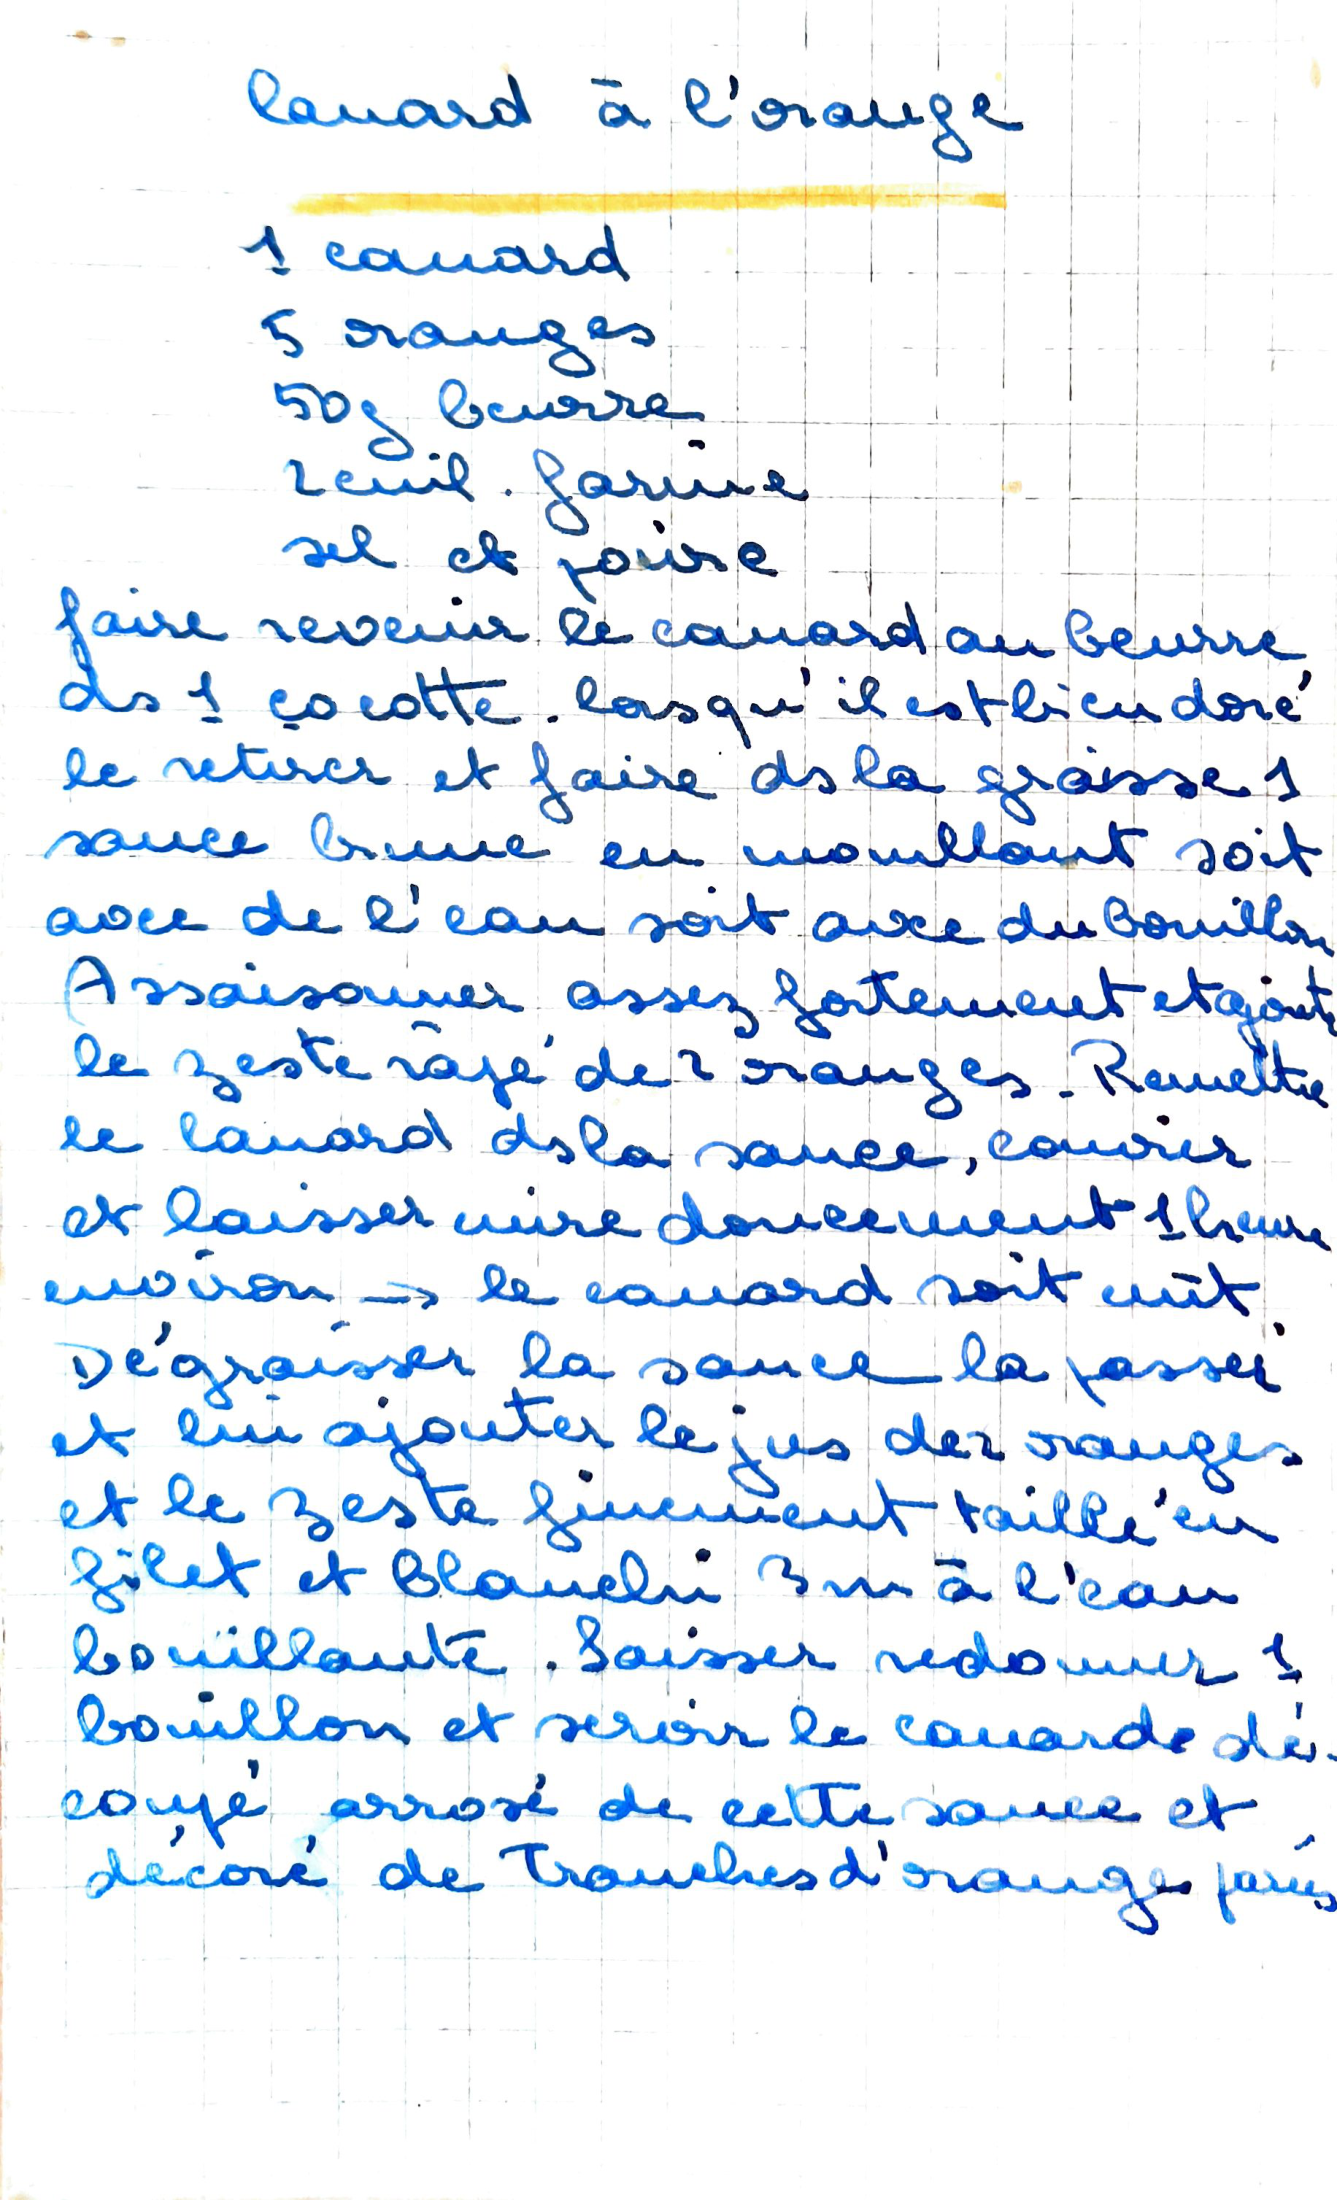 Canard à l'orange
1 canard
5 oranges
50g beurre
2 cuil. farine
sel et poivre
faire revenir le canard au beurre
ds 1 cocotte. lorsqu'il est bien doré
le retirer et faire ds la graisse 1
sauce brune en mouillant soit
avec de l'eau soit avec du bouillon
Assaisonner assez fortement et ajouter
le zeste râpé de 2 oranges - Remettre
le canard ds la sauce, couvrir
et laisser cuire doucement 1 heure
environ → le canard soit cuit
Dégraisser la sauce la passer
et lui ajouter le jus de 2 oranges
et le zeste finement taillé en
filet et blanchi 3 m à l'eau
bouillante. Laisser redonner 1
bouillon et servir le canard dé-
coupé arrosé de cette sauce et
décoré de tranches d'orange